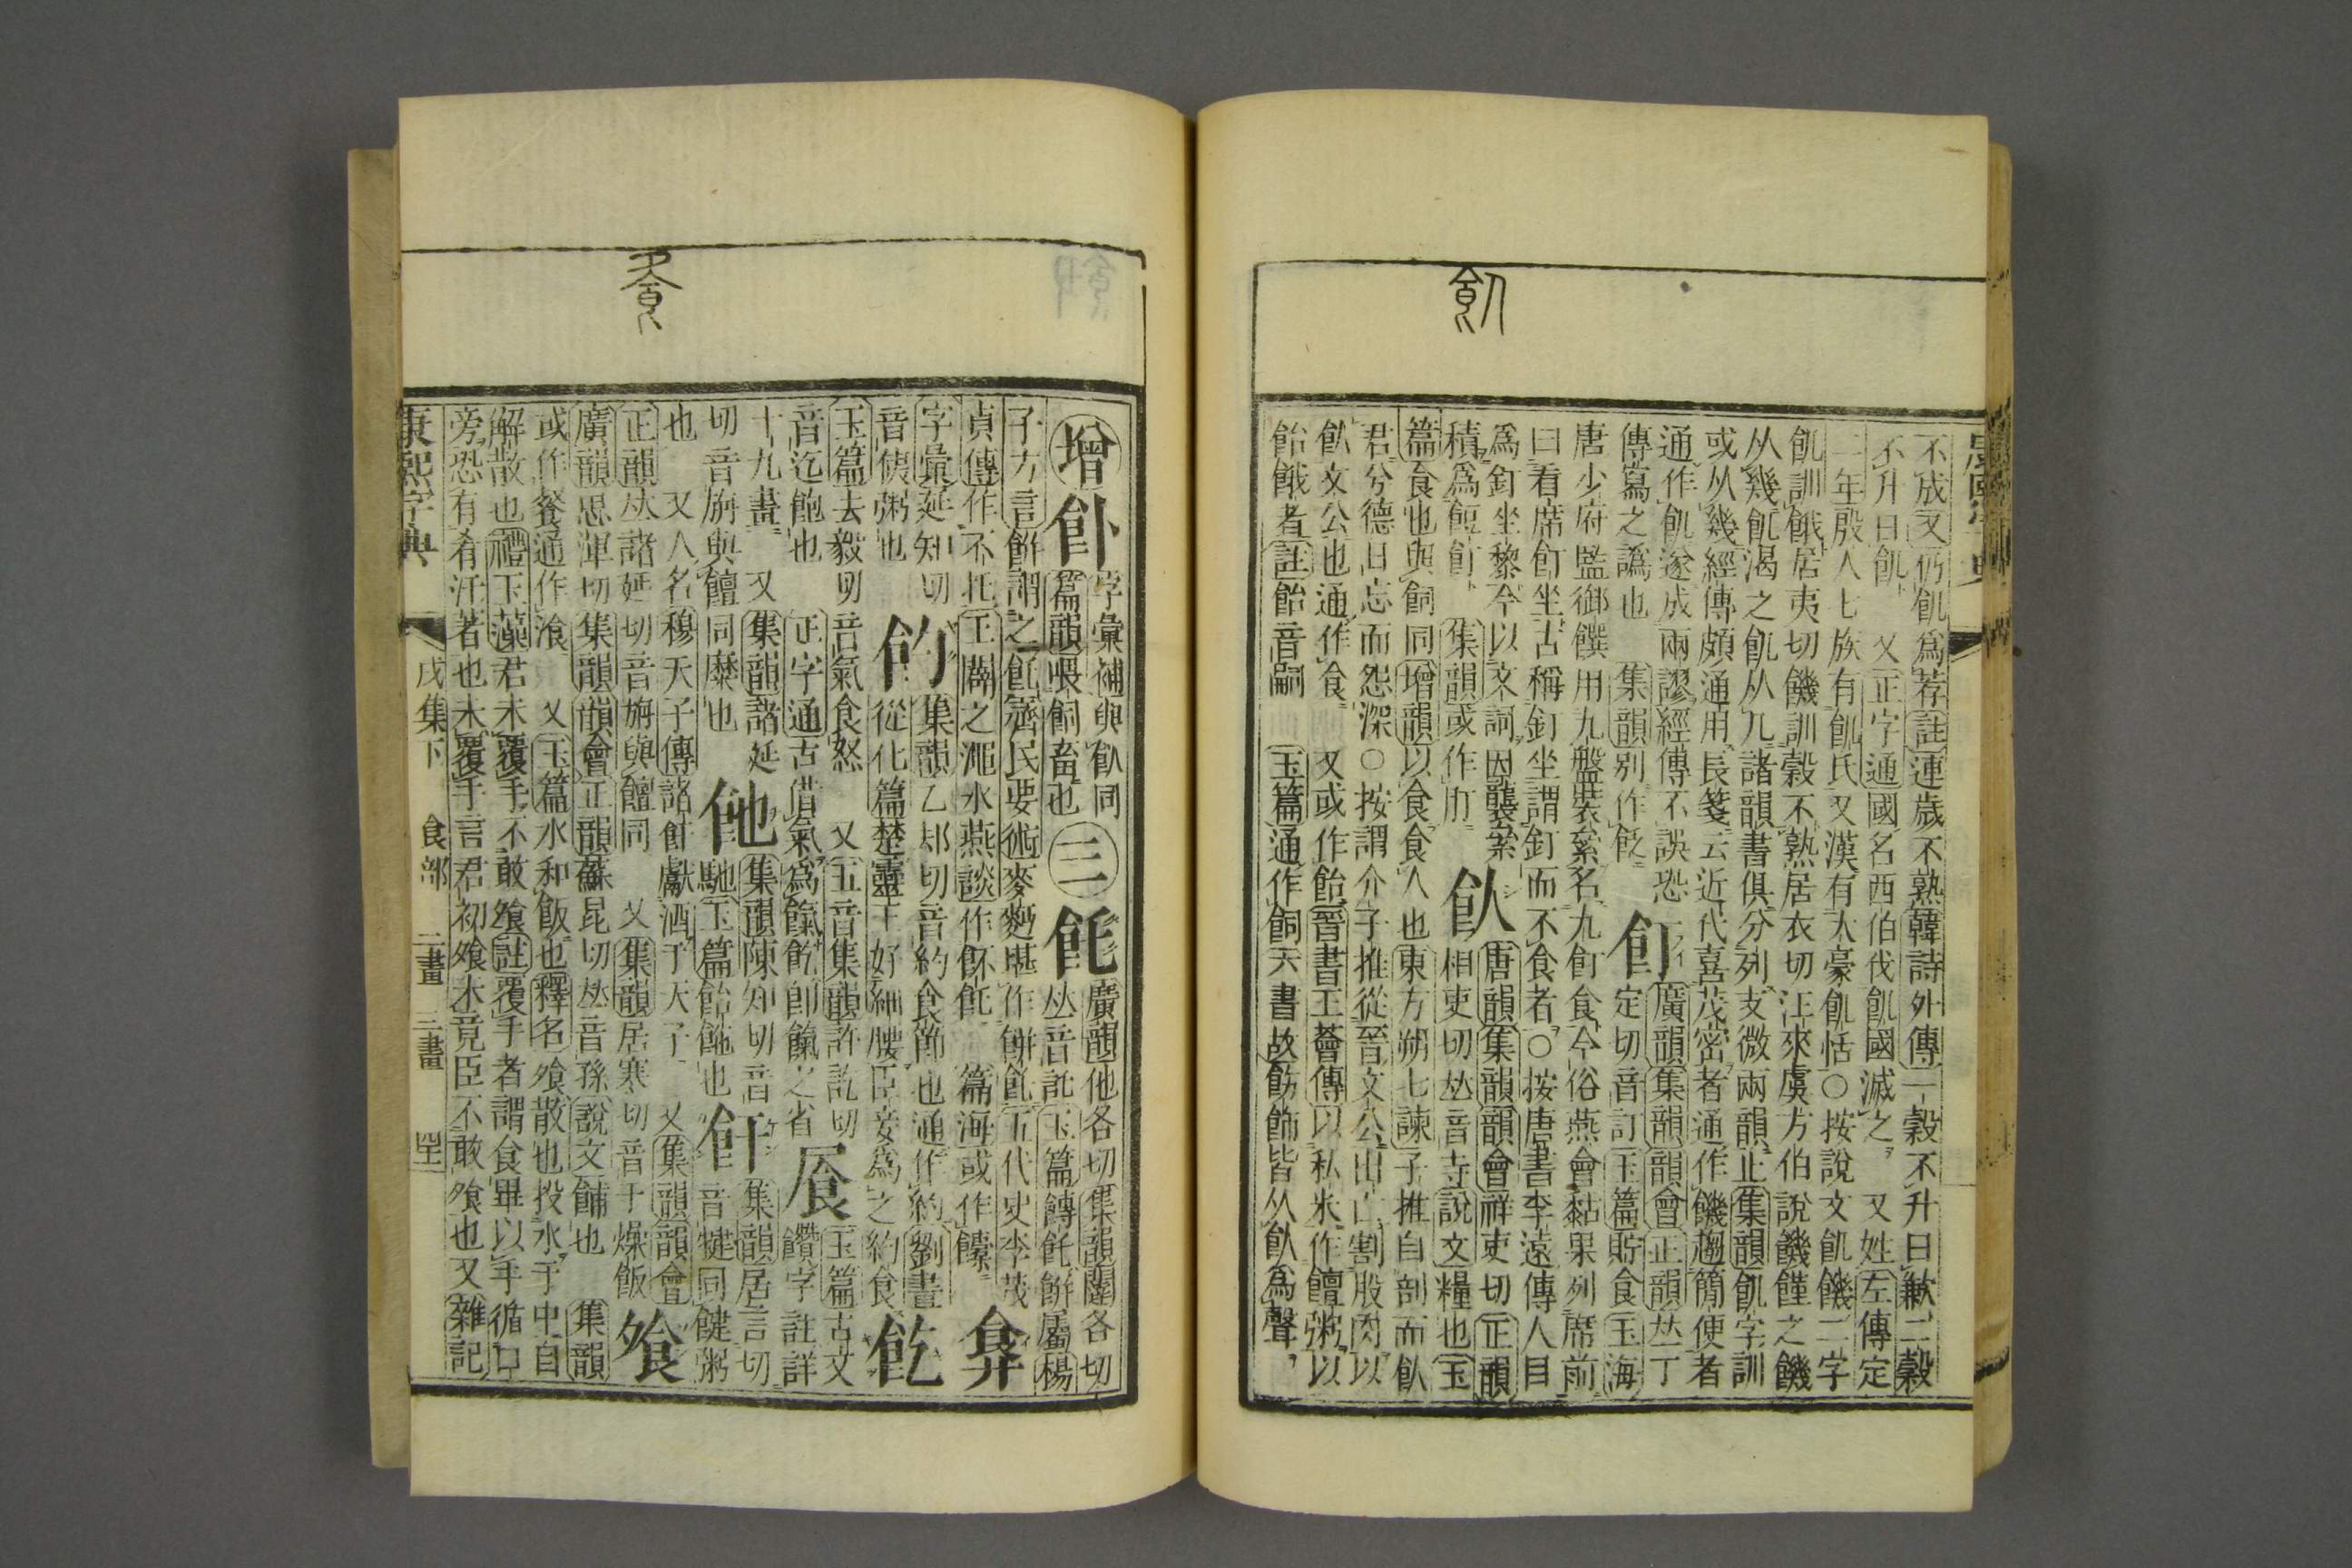 飢
不成又仍飢爲荐註連歲不熟韓詩外傳一穀不升曰歉二穀
不升曰飢又正字通國名西伯伐飢國滅之又姓左傳定
年殷人七族有飢氏又漢有大豪飢恬〇按說文飢饑二字
飢訓餓居夷切饑訓穀不熟居衣切汪來虞方伯說饑饉之饑
从幾飢渴之飢从几諸韻書俱分列支微兩韻止集韻飢字訓
或从幾經傳頗通用長箋云近代喜茂密者通作饑趨簡便者
通作飢遂成兩謬經傳不誤恐
傳寫之譌也集韻別作飥飣定切音訂玉篇貯食玉海
廣韻集韻韻會正韻𠀤丁
唐少府監御饌用九盤裝絫名九飣食今俗燕會黏果列席前
曰看席飣坐古稱釘坐謂釘而不食者〇按唐書李遠傳人目
爲釘坐黎今以文詞因襲絫
積爲餖飣集韻或作飣飤相吏切𠀤音寺說文糧也玉
唐韻集韻韻會祥吏切正韻
篇食也與飼同增韻以食食人也東方朔七諫子推自剖而飤
君兮德日忘而怨深〇按謂介子推從晉文公出亡割股肉以
飤文公也通作食又或作飴晉書王薈傳以私米作饘粥以
飴餓者註飴音嗣玉篇通作飼六書故飭飾皆从飤爲聲
飧
增𩚁字彙補與飤同
篇韻喂飼畜也三飥廣韻他各切集韻闥各切
𠀤音託玉篇餺飥餠屬楊
子方言餠謂之飥齊民要術麥麪堪作餠飥五代史李茂
貞傳作不托王闢之澠水燕談作䬩飥篇海或作𩞾
字彙延知切
音侇粥也䬣集韻乙却切音約食節也通作約劉晝
從化篇楚靈王好細腰臣妾爲之約食飮
玉篇去毅切音氣食怒又五音集韻許訖切玉篇古文
音迄飽也正字通古借氣爲餼飮卽餼之省饡字註詳
十九畫又集韻諸延
切音旃與饘同糜也䬁集韻陳知切音
馳玉篇飴䬁也飦集韻居言切
音犍同健粥
也又人名穆天子傳諮飦獻酒于天子又集韻韻會
正韻𠀤諸延切音旃與饘同又集韻居寒切音干燥飯
飧
廣韻思渾切集韻韻會正韻蘇昆切𠀤音孫說文餔也集韻
或作餐通作湌又玉篇水和飯也釋名飧散也投水于中自
解散也禮玉藻君未覆手不敢飧註覆手者謂食畢以手循口
旁恐有肴汙著也未覆手言君初飧未竟臣不敢飧也又雜記
康熙字典戌集下食部二畫三畫